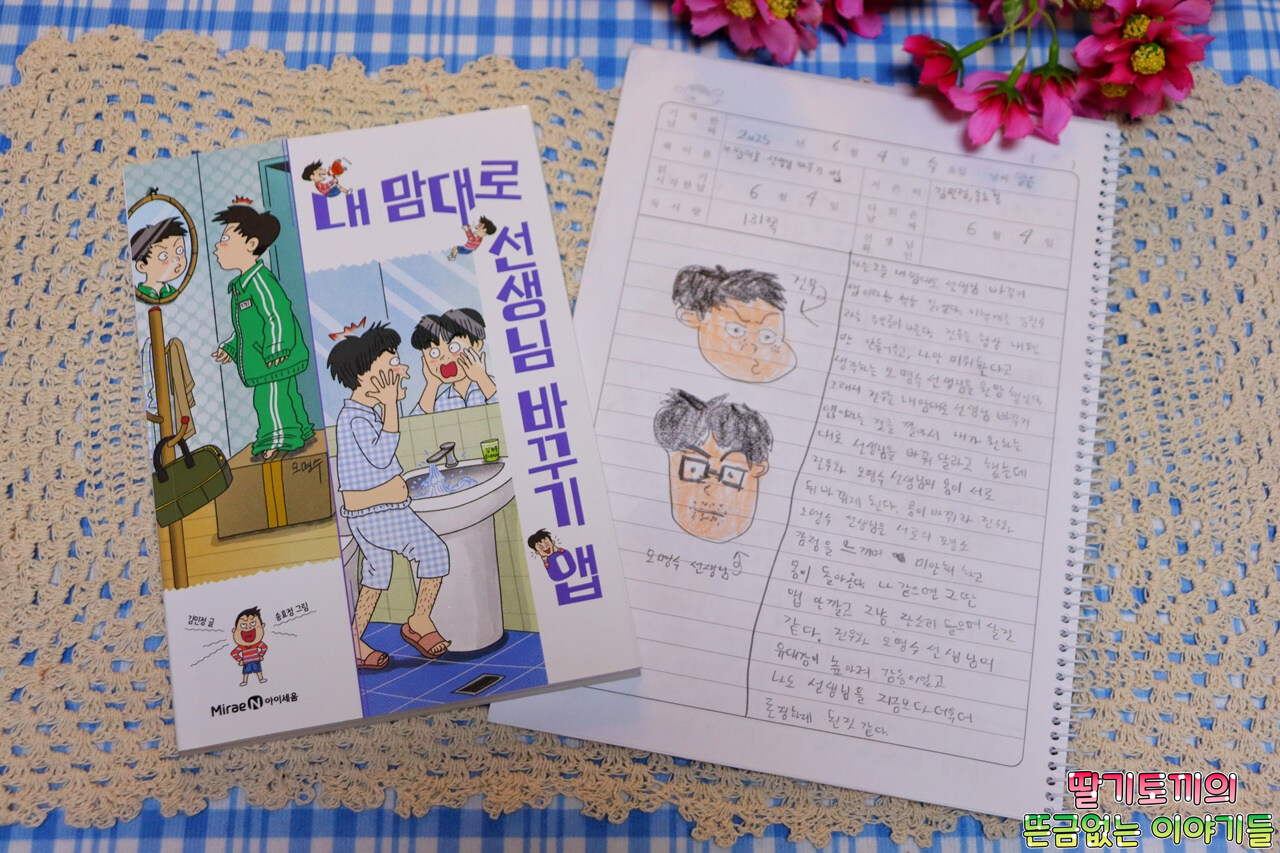 내 맘대로
선생님 바꾸기 앱
오명수
김민정 글
송효정 그림
Mirae N 아이세움
2025 년 6 월 4 일 수 요일
책 이름 내 맘대로 선생님 바꾸기 앱
지은이 김민정, 송효정
6 월 4 일
6 월 4 일
131쪽
진우
오명수 선생님
나는 오늘 내 맘대로 선생님 바꾸기
앱이라는 책을 읽었다.
생각하는 오명수 선생님을
그래서 진우는 내 맘대로 선생님 바꾸기
앱이라는 것을 깔아서 내가 원하는
대로 선생님을 바꿔 달라고 했는데
진우와 오명수 선생님의 몸이 서로
뒤바뀌게 된다. 몸이 바뀌자 진우와
오명수 선생님은 서로의 평소
감정을 느끼며 미안해 하고
몸이 돌아온다. 나 같으면 그딴
앱 안깔고 그냥 잔소리 들으며 살것
같다. 진우와 오명수 선생님의
유대감이 높아져 감동이었고
나도 선생님을 지금보다 더욱더
존경하게 된것 같다.
딸기토끼의
뜬금없는 이야기들